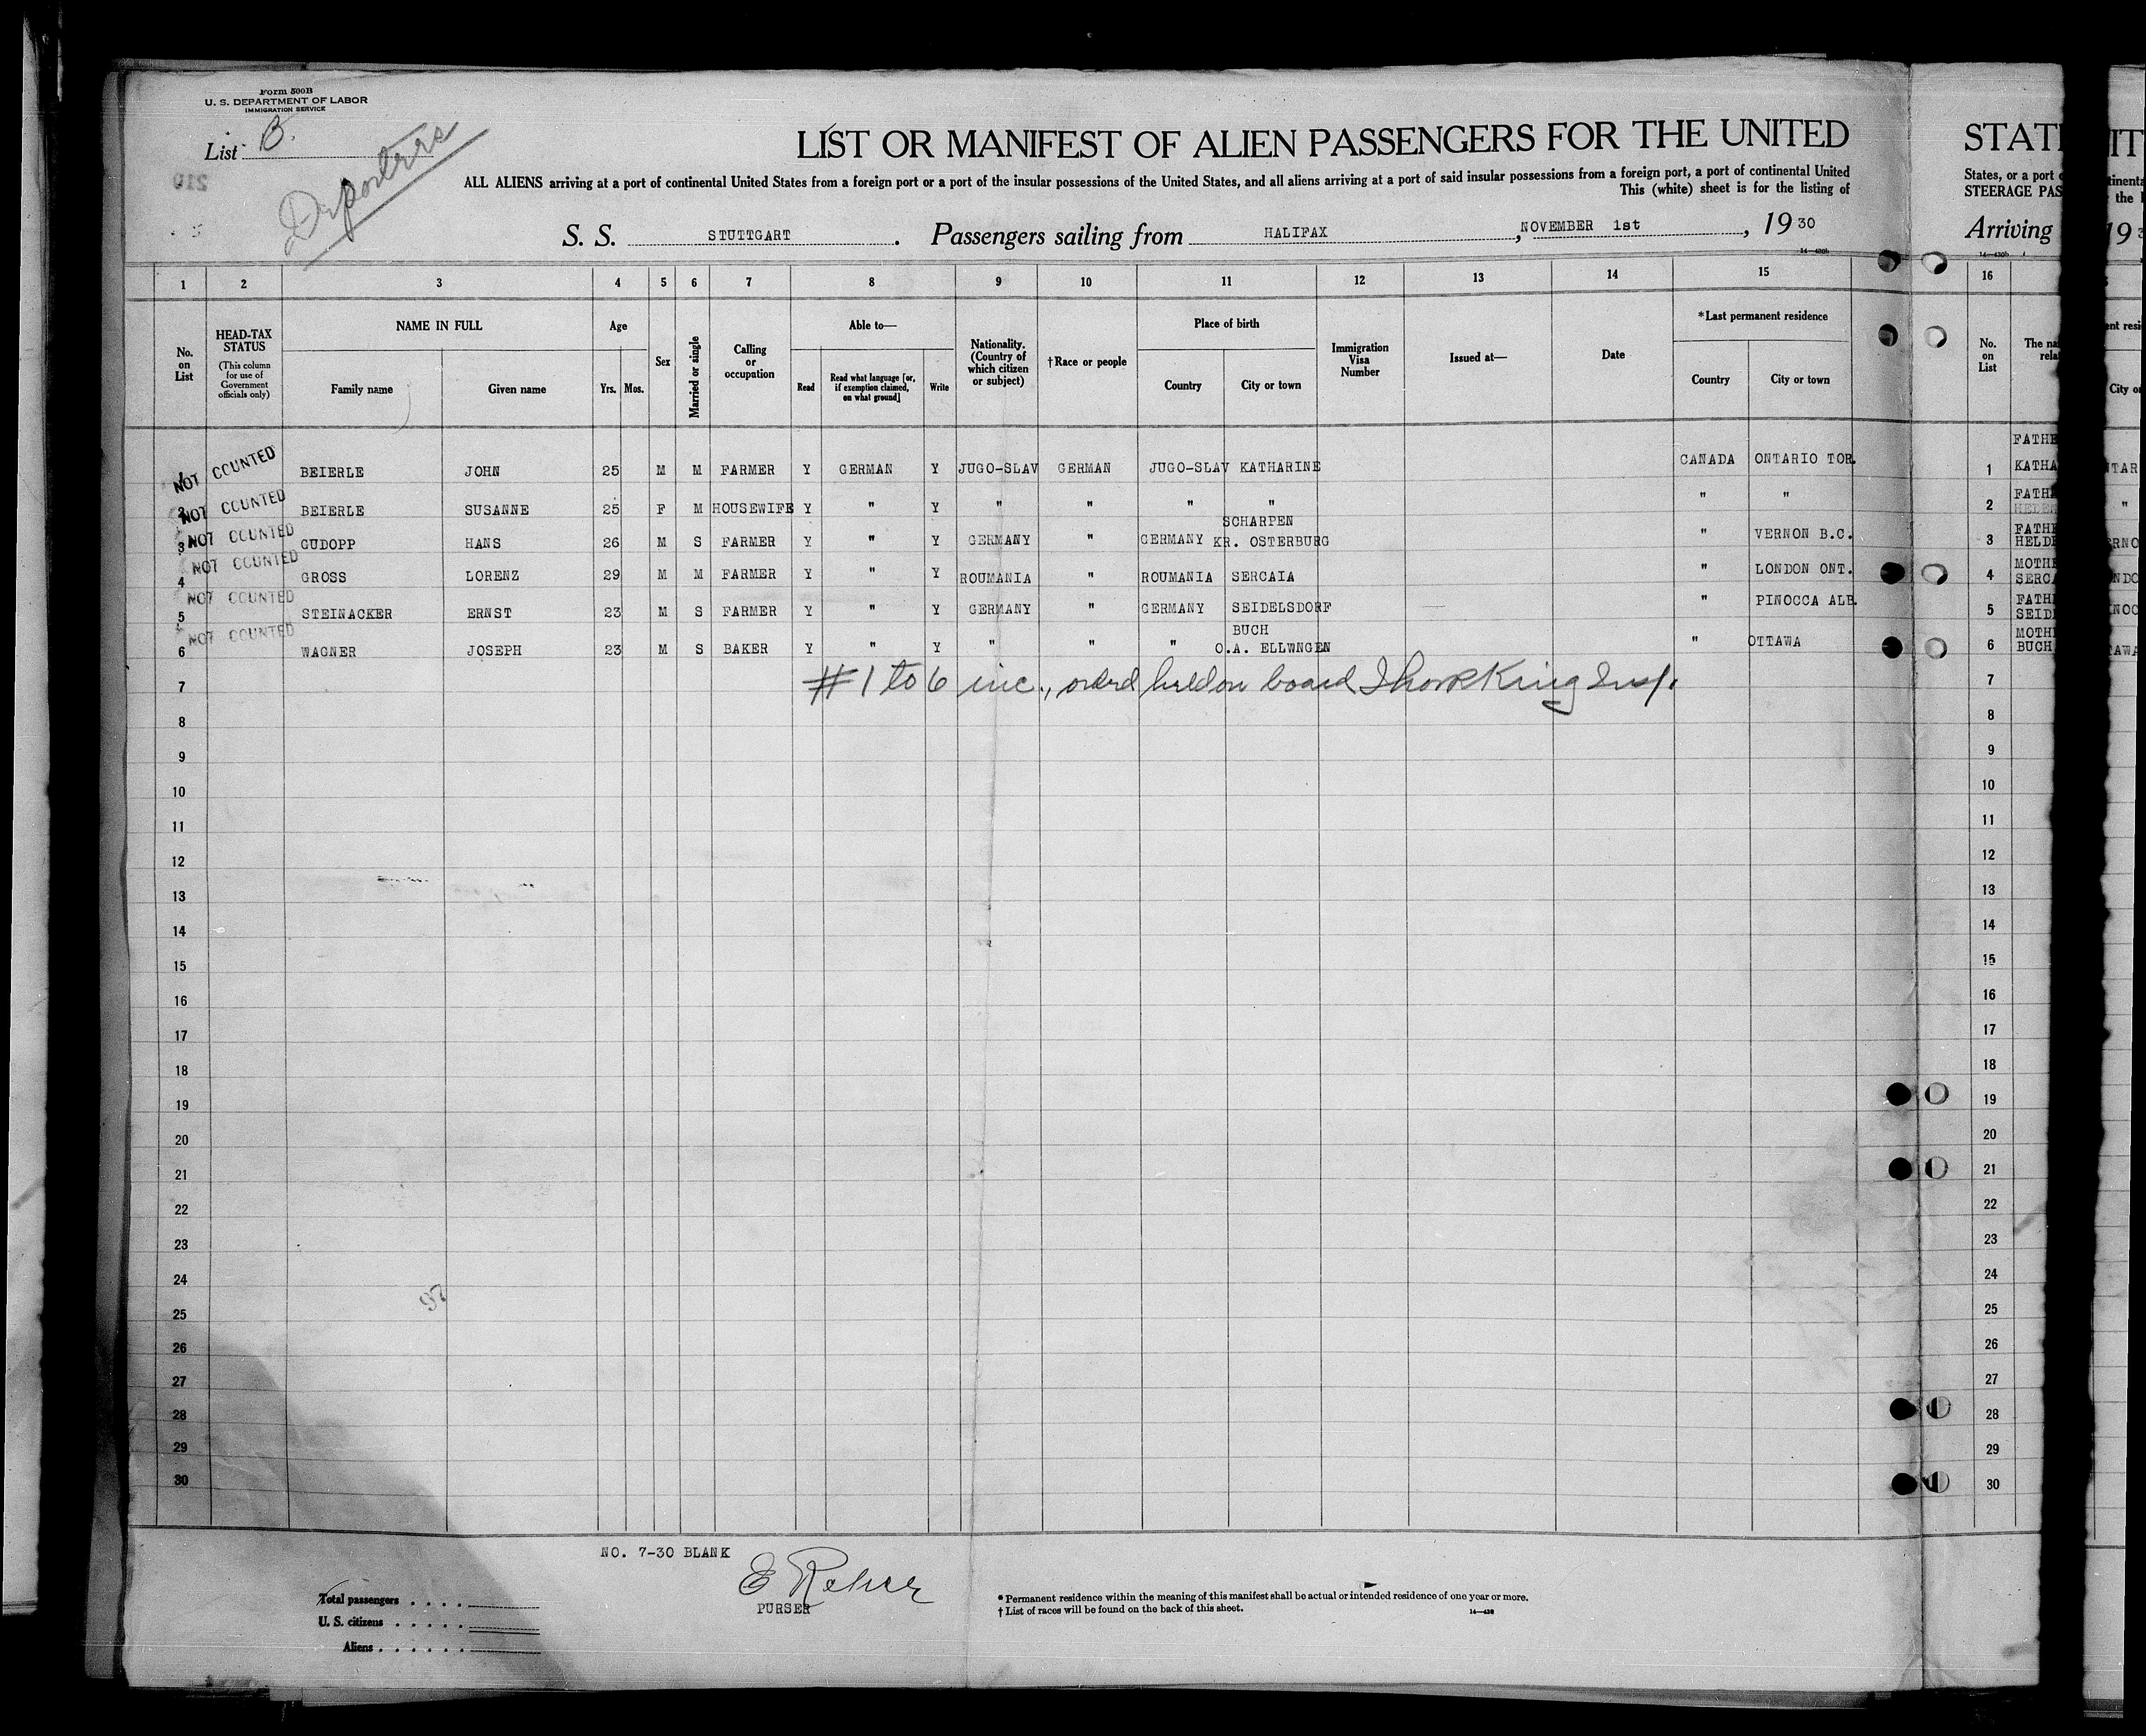 Form 500B
U. S. DEPARTMENT OF LABOR
IMMIGRATION SERVICE
List B.
Deportees
LIST OR MANIFEST OF ALIEN PASSENGERS FOR THE UNITED
ALL ALIENS arriving at a port of continental United States from a foreign port or a port of the insular possessions of the United States, and all aliens arriving at a port of said insular possessions from a foreign port, a port of continental United
This (white) sheet is for the listing of
S. S. STUTTGART. Passengers sailing from HALIFAX, NOVEMBER 1st, 19 30
14—430b
1 2 3 4 5 6 7 8 9 10 11 12 13 14 15
No. on List
HEAD-TAX STATUS
(This column for use of Government officials only)
NAME IN FULL
Family name Given name
Age
Yrs. Mos.
Sex
Married or single
Calling or occupation
Able to—
Read
Read what language [or, if exemption claimed, on what ground]
Write
Nationality. (Country of which citizen or subject)
†Race or people
Place of birth
Country City or town
Immigration Visa Number
Issued at—
Date
*Last permanent residence
Country City or town
NOT COUNTED 1 BEIERLE JOHN 25 M M FARMER Y GERMAN Y JUGO-SLAV GERMAN JUGO-SLAV KATHARINE CANADA ONTARIO TOR.
NOT COUNTED 2 BEIERLE SUSANNE 25 F M HOUSEWIFE Y " Y " " " " " "
NOT COUNTED 3 GUDOPP HANS 26 M S FARMER Y " Y GERMANY " GERMANY SCHARPEN KR. OSTERBURG " VERNON B.C.
NOT COUNTED 4 GROSS LORENZ 29 M M FARMER Y " Y ROUMANIA " ROUMANIA SERCAIA " LONDON ONT.
NOT COUNTED 5 STEINACKER ERNST 23 M S FARMER Y " Y GERMANY " GERMANY SEIDELSDORF " PINOCCA ALB.
NOT COUNTED 6 WAGNER JOSEPH 23 M S BAKER Y " Y " " " BUCH O.A. ELLWNGEN " OTTAWA
7 #1 to 6 inc., ordrd held on board King Insp.
8
9
10
11
12
13
14
15
16
17
18
19
20
21
22
23
24
25
26
27
28
29
30
97
NO. 7-30 BLANK
PURSER
Total passengers
U. S. citizens
Aliens
* Permanent residence within the meaning of this manifest shall be actual or intended residence of one year or more.
† List of races will be found on the back of this sheet.
14—430
STATE
States, or a port
STEERAGE PAS
Arriving
14—430b
16
No. on List
The na
rela
1 FATHE
KATHA
2 FATH
3 FATHE
HELDE
4 MOTHE
SERCA
5 FATH
SEIDE
6 MOTH
BUCH
7
8
9
10
11
12
13
14
15
16
17
18
19
20
21
22
23
24
25
26
27
28
29
30